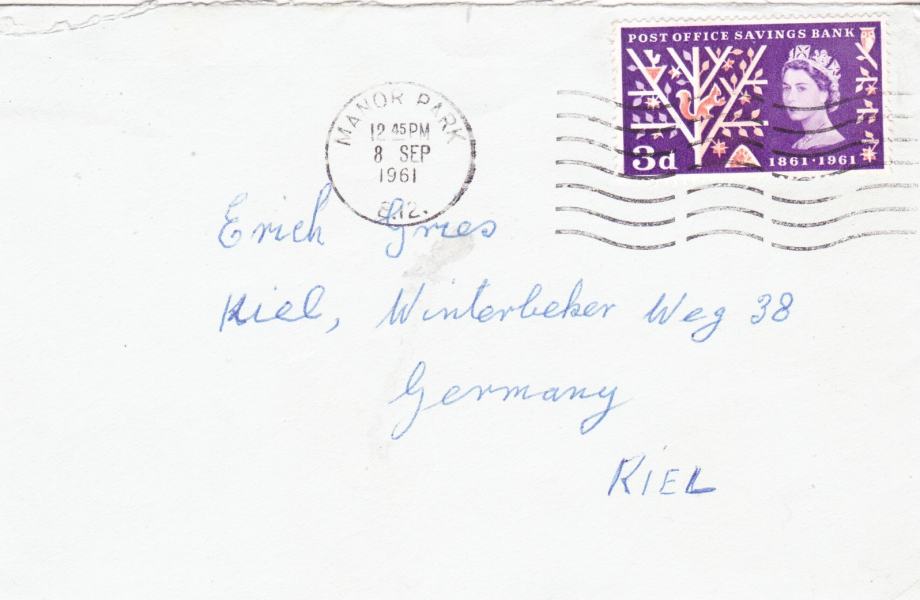 POST OFFICE SAVINGS BANK
3d
1861·1961
MANOR PARK
12 45PM
8 SEP
1961
E.12.
Erich Gries
Kiel, Winterbeker Weg 38
Germany
KIEL